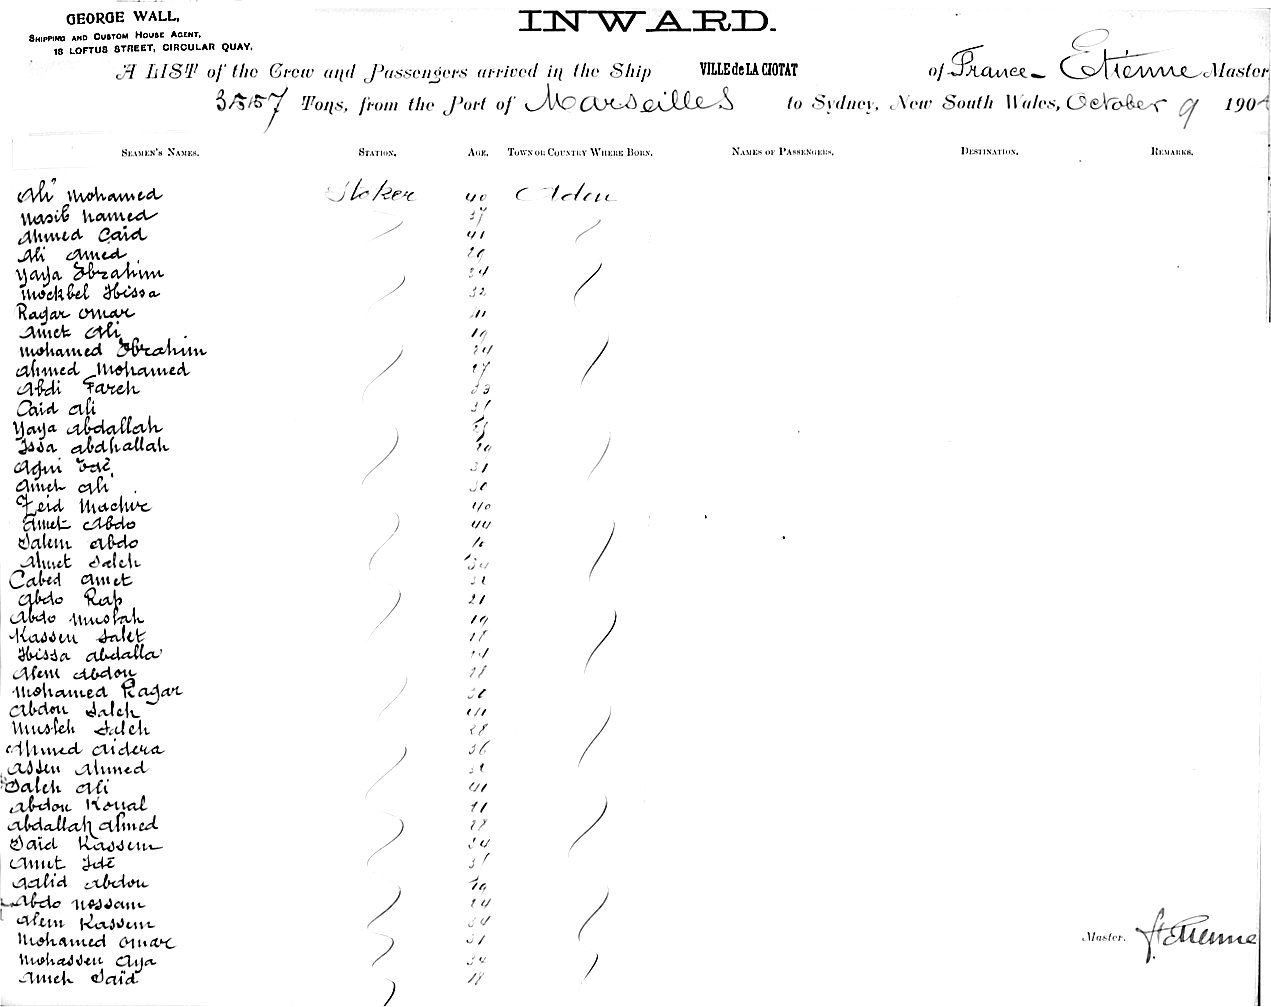 GEORGE WALL,
SHIPPING AND CUSTOM HOUSE AGENT,
18 LOFTUS STREET, CIRCULAR QUAY.
INWARD.
A LIST of the Crew and Passengers arrived in the Ship VILLE de LA CIOTAT of France - Etienne Master
3557 Tons, from the Port of Marseilles to Sydney, New South Wales, October 9 190
SEAMEN'S NAMES. STATION. AGE. TOWN OR COUNTRY WHERE BORN. NAMES OF PASSENGERS. DESTINATION. REMARKS.
Ali Mohamed Stoker 40 Aden
Nasib hamed 37
Ahmed Caid 41
Ali Amed 29
Yaya Ibrahim 34
Mockbel Hissa 32
Ragar Omar
Amet Ali 19
Mohamed Ibrahim 24
Ahmed Mohamed 27
Abdi Fareh 33
Caid Ali 31
Yaya Abdallah
Issa Abdhallah
31
Ameh Ali 30
Zeid 40
Amet Abdo 44
Salem Abdo
Ahmet Saleh 34
Cabed Amet
Abdo Rap 21
Abdo Muslah 19
Kassem Salet 28
Hissa Abdalla 24
Alem Abdou 28
Mohamed Ragar 30
Abdou Saleh
Musleh Saleh 28
Ahmed Aidera 36
Assen Ahmed
Saleh Ali 41
Abdou Konal
Abdallah Ahmed 28
Said Kassem 34
Amet Idé 31
Abdou
Abdo Nossam 24
Alem Kassem 34
Mohamed Omar 31 Master. H. Etienne
Mohassen Aya 34
Ameh Saïd 18